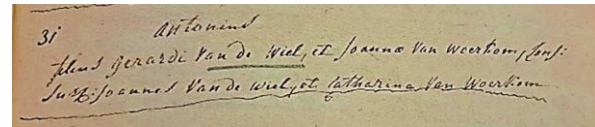 31 Antonius
filius Gerardi Van de Wiel, et Joannæ Van Woerkom, conj:
Susc: Joannes Van de Wiel, et Catharina Van Woerkom